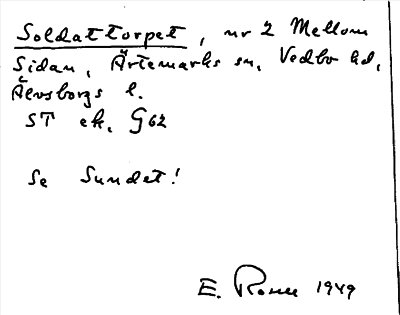 Soldattorpet, nr 2 Mellom
Sidan, Ärtemarks sn, Vedbo hd,
Älvsborgs l.
ST ek. G62
Se Sundet!
E. Rosell 1949